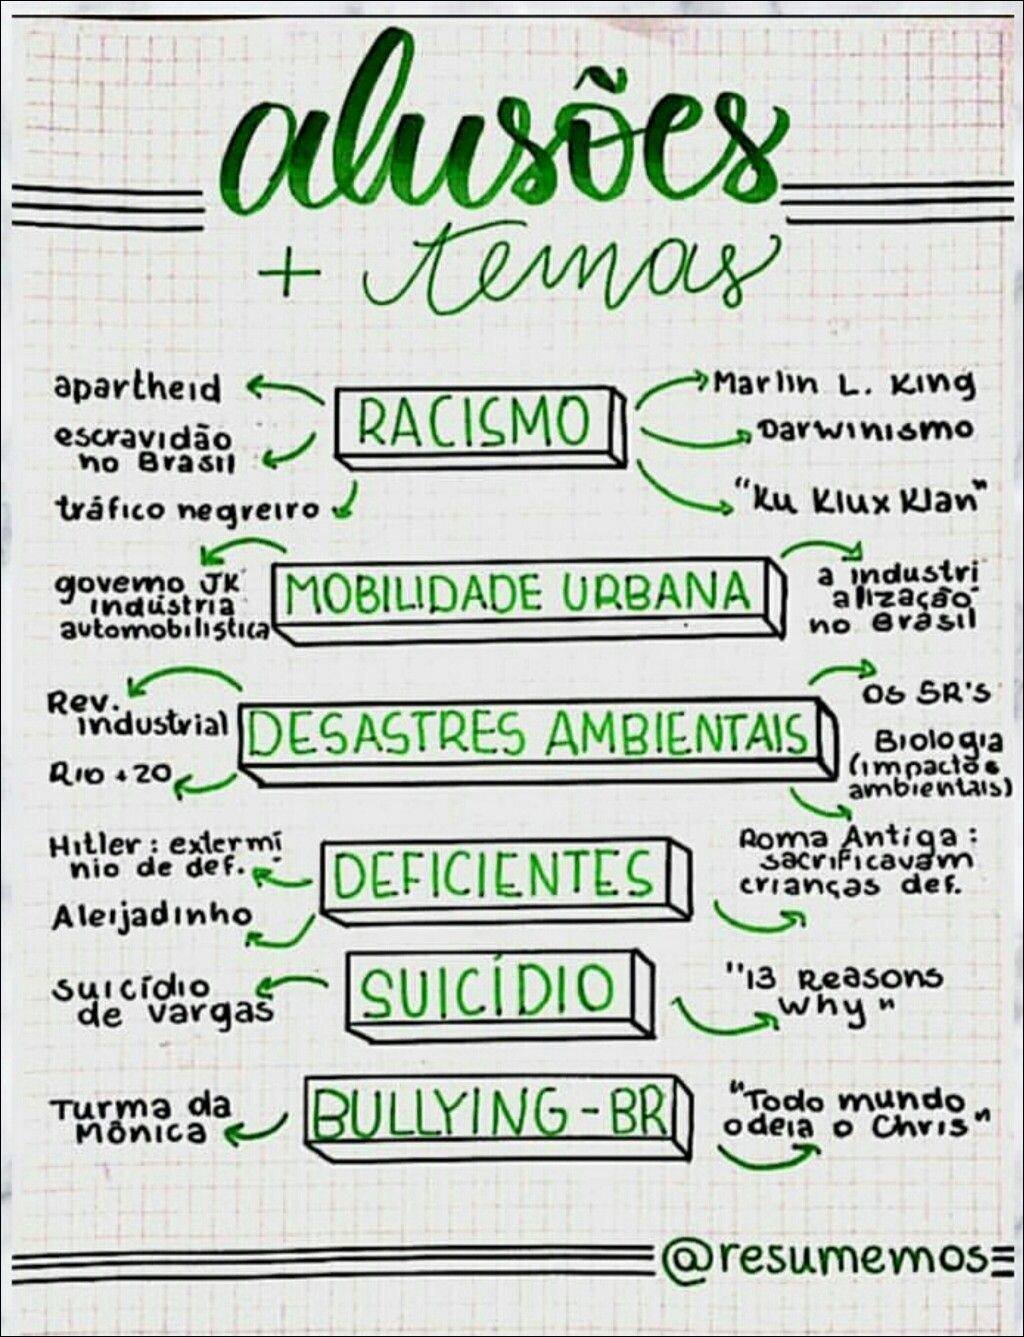 alusões
+ temas
RACISMO
apartheid
escravidão
no Brasil
tráfico negreiro
Marlin L. King
Darwinismo
"Ku Klux Klan"
MOBILIDADE URBANA
governo JK
indústria
automobilística
a industri
alização
no Brasil
DESASTRES AMBIENTAIS
Rev.
industrial
Rio +20
Os 5R's
Biologia
(impactos
ambientais)
DEFICIENTES
Hitler : extermí
nio de def.
Aleijadinho
Roma Antiga :
sacrificavam
crianças def.
SUICÍDIO
suicídio
de Vargas
"13 Reasons
Why"
BULLYING-BR
Turma da
Mônica
"Todo mundo
odeia o Chris"
@resumemos